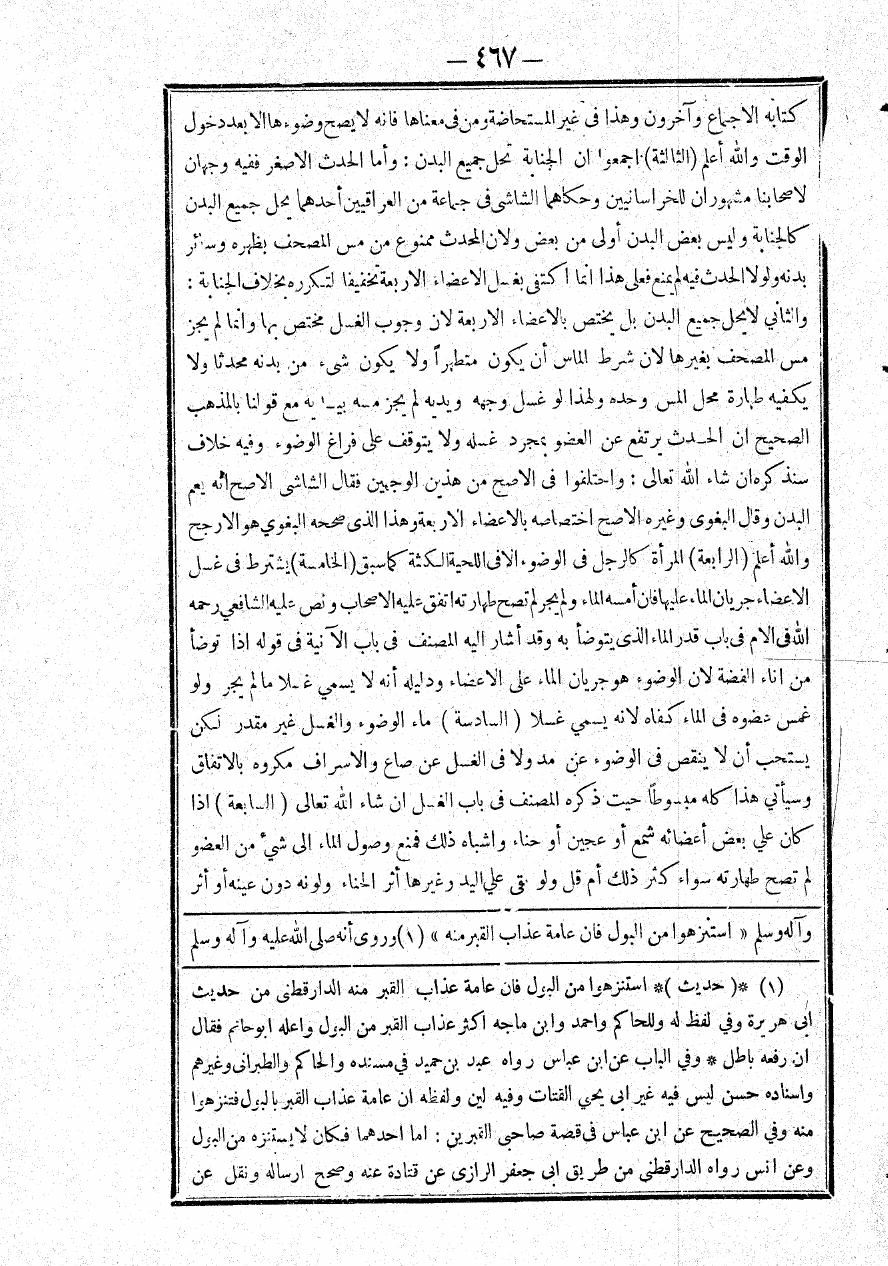 — ٤٦٧ —
كتابه الاجماع وآخرون وهذا فى غير المستحاضة ومن فى معناها فانه لا يصح وضوءها الا بعد دخول
الوقت والله أعلم (الثالثة) اجمعوا ان الجنابة تحل جميع البدن : وأما الحدث الاصغر ففيه وجهان
لاصحابنا مشهوران للخراسانيين وحكاهما الشاشى فى جماعة من العراقيين أحدهما يحل جميع البدن
كالجنابة وليس بعض البدن أولى من بعض ولان المحدث ممنوع من مس المصحف بظهره وسائر
بدنه ولولا الحدث فيه لم يمنع فعلى هذا انما اكتفى بغسل الاعضاء الاربعة تخفيفا لتكرره بخلاف الجنابة :
والثاني لا يحل جميع البدن بل يختص بالاعضاء الاربعة لان وجوب الغسل مختص بها وانما لم يجز
مس المصحف بغيرها لان شرط الماس أن يكون متطهراً ولا يكون شىء من بدنه محدثا ولا
يكفيه طهارة محل المس وحده ولهذا لو غسل وجهه ويديه لم يجز مسه بيديه مع قولنا بالمذهب
الصحيح ان الحدث يرتفع عن العضو بمجرد غسله ولا يتوقف على فراغ الوضوء وفيه خلاف
سنذكره ان شاء الله تعالى : واختلفوا فى الاصح من هذين الوجهين فقال الشاشى الاصح انه يعم
البدن وقال البغوى وغيره الاصح اختصاصه بالاعضاء الاربعة وهذا الذى صححه البغوي هو الارجح
والله أعلم (الرابعة) المرأة كالرجل فى الوضوء الا فى اللحية الكثة كما سبق (الخامسة) يشترط فى غسل
الاعضاء جريان الماء عليها فان أمسه الماء ولم يجر لم تصح طهارته اتفق عليه الاصحاب ونص عليه الشافعي رحمه
الله فى الام فى باب قدر الماء الذى يتوضأ به وقد أشار اليه المصنف فى باب الآنية فى قوله اذا توضأ
من اناء الفضة لان الوضوء هو جريان الماء على الاعضاء ودليله أنه لا يسمي غسلا ما لم يجر ولو
غمس عضوه فى الماء كفاه لانه يسمي غسلا ( السادسة ) ماء الوضوء والغسل غير مقدر لكن
يستحب أن لا ينقص فى الوضوء عن مد ولا فى الغسل عن صاع والاسراف مكروه بالاتفاق
وسيأتي هذا كله مبسوطاً حيث ذكره المصنف فى باب الغسل ان شاء الله تعالى ( السابعة ) اذا
كان علي بعض أعضائه شمع أو عجين أو حناء واشباه ذلك فمنع وصول الماء الى شيء من العضو
لم تصح طهارته سواء كثر ذلك أم قل ولو بقى علي اليد وغيرها أثر الحناء ولونه دون عينه أو أثر
وآله وسلم « استنزهوا من البول فان عامة عذاب القبر منه » (١) وروى أنه صلى الله عليه وآله وسلم
(١) *( حديث )* استنزهوا من البول فان عامة عذاب القبر منه الدارقطنى من حديث
ابى هريرة وفي لفظ له وللحاكم واحمد وابن ماجه اكثر عذاب القبر من البول واعله ابو حاتم فقال
ان رفعه باطل * وفي الباب عن ابن عباس رواه عبد بن حميد في مسنده والحاكم والطبرانى وغيرهم
واسناده حسن ليس فيه غير ابى يحي القتات وفيه لين ولفظه ان عامة عذاب القبر بالبول فتنزهوا
منه وفي الصحيح عن ابن عباس فى قصة صاحبى القبرين : اما احدهما فكان لا يستنزه من البول
وعن انس رواه الدارقطنى من طريق ابى جعفر الرازى عن قتادة عنه وصحح ارساله ونقل عن